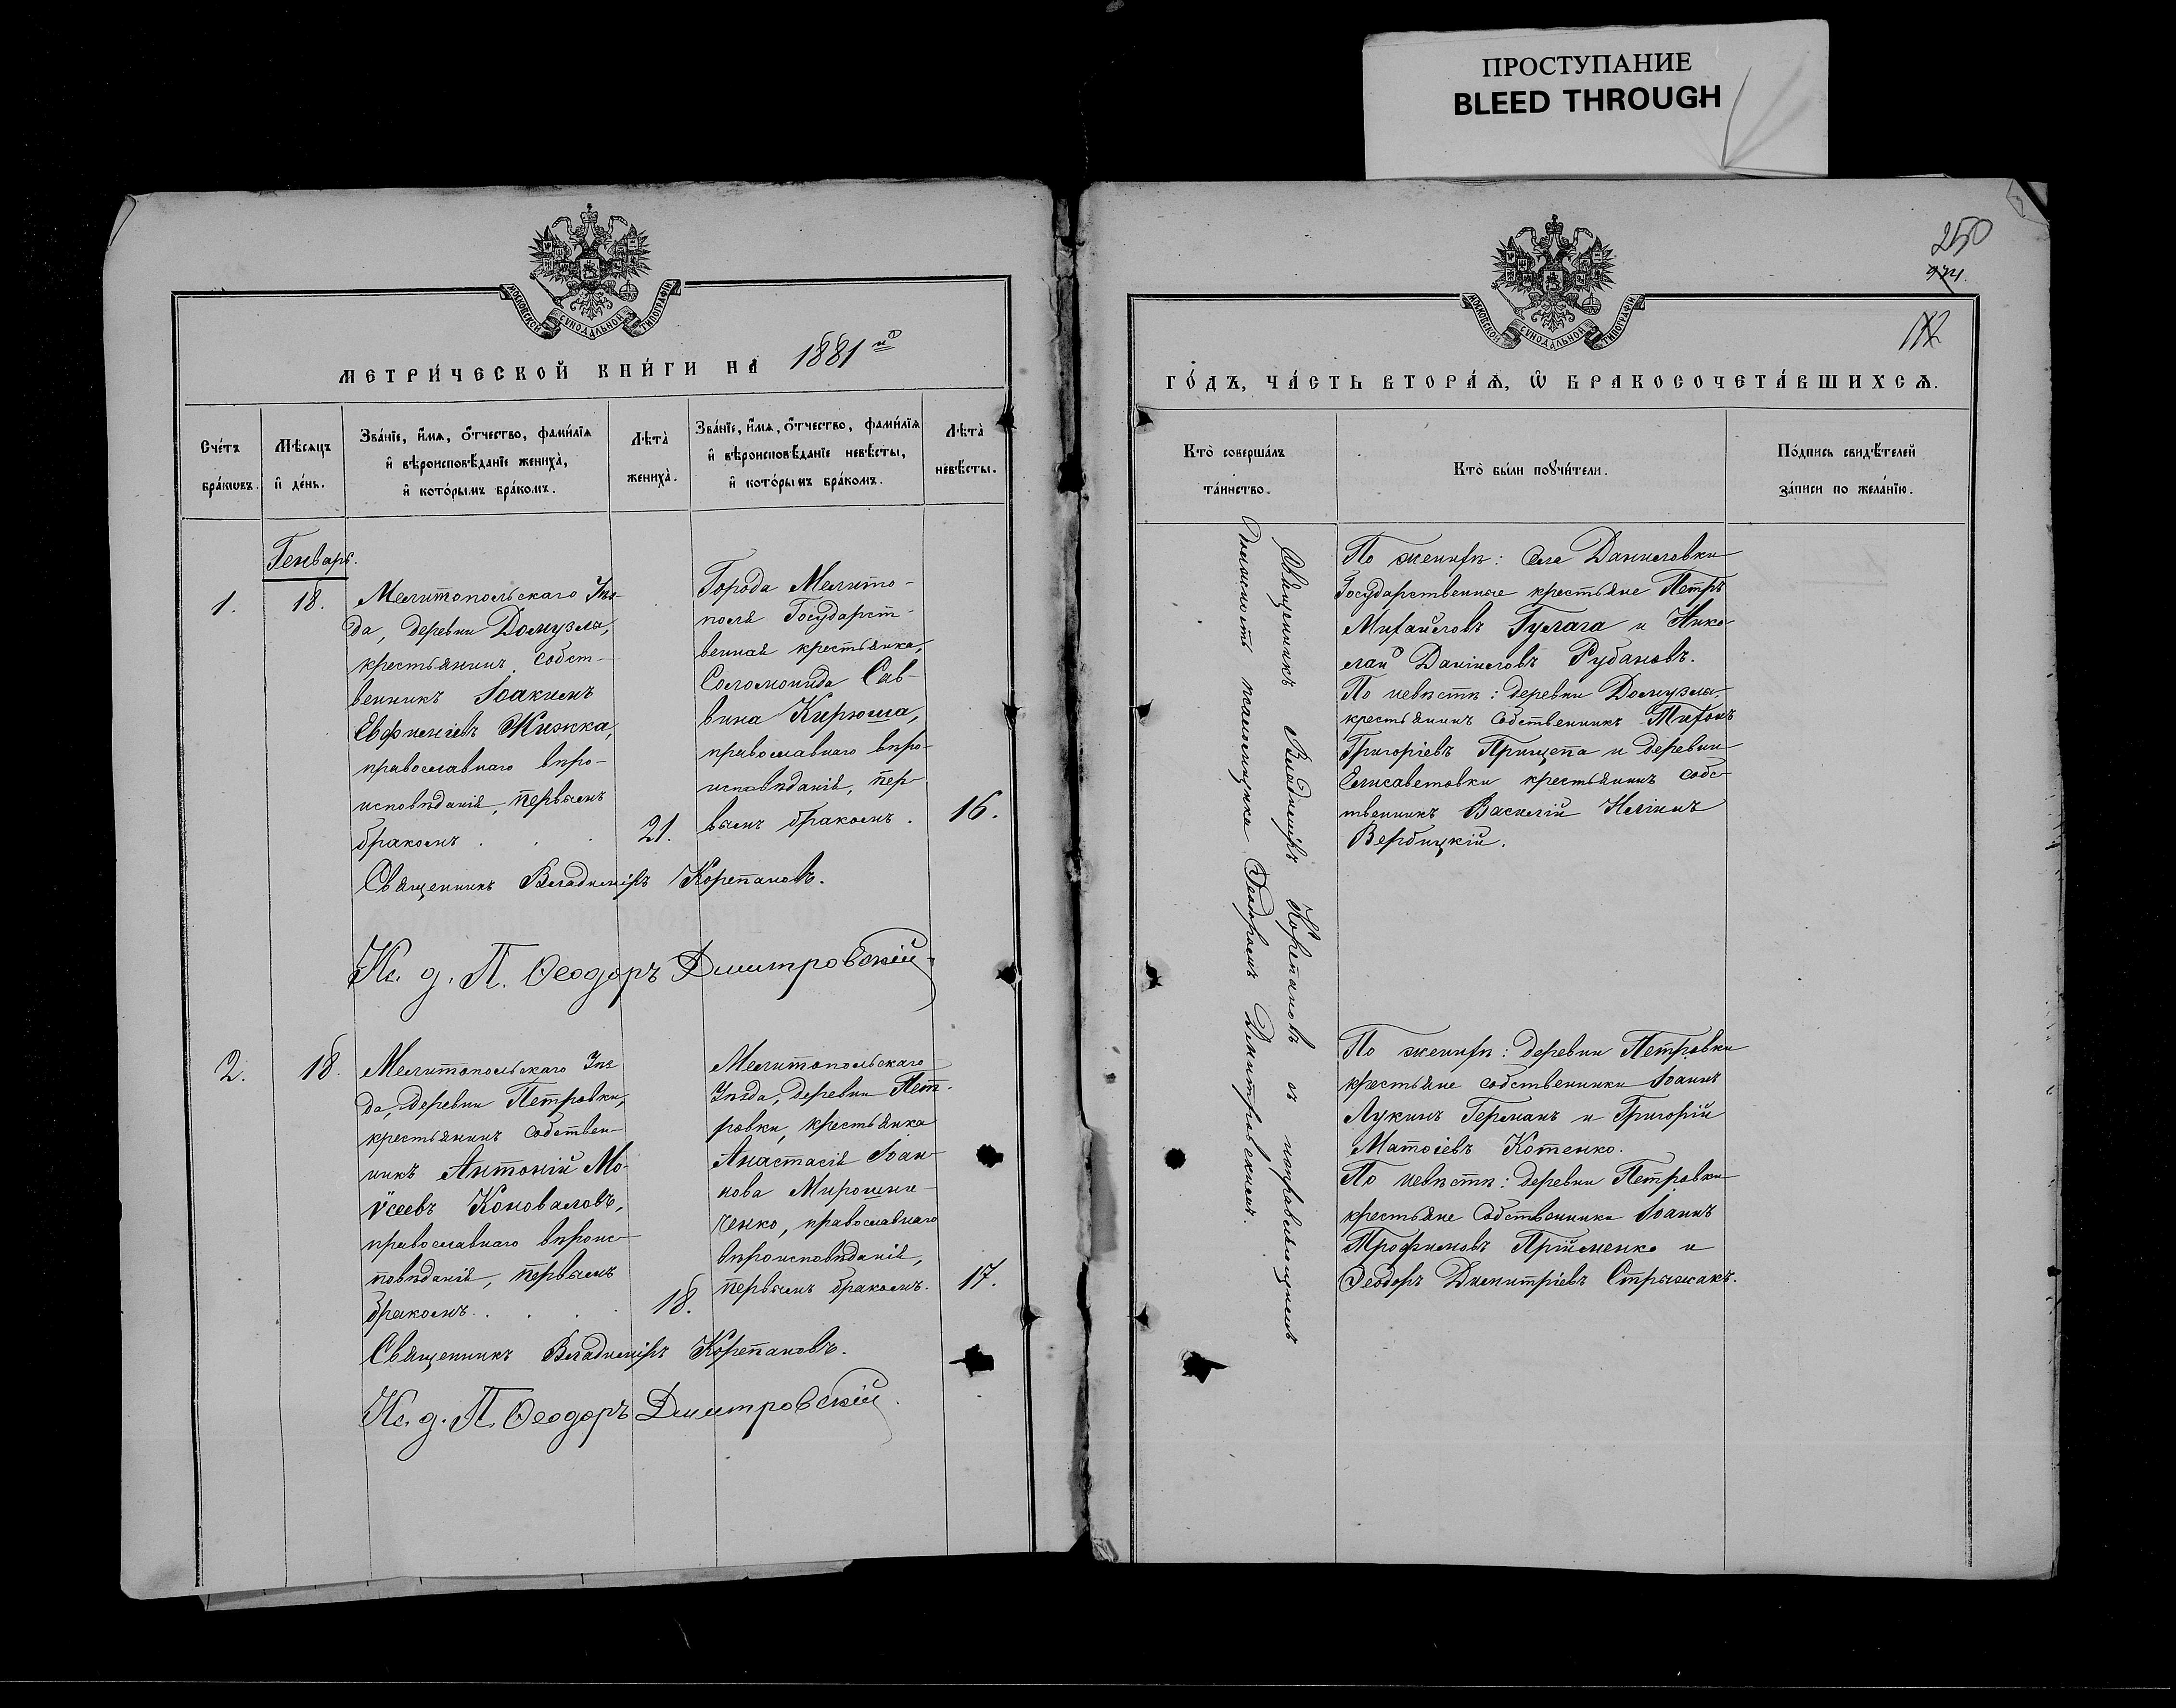 ПРОСТУПАНИЕ
BLEED THROUGH
МОСКОВСКОЙ СѴНОДАЛЬНОЙ ТИПОГРАФІИ
МЕТРИ́ЧЕСКОЙ КНИ́ГИ НА 1881 й
Сче́тъ бра́кѡвъ.
Мѣсѧцъ и҆ де́нь.
Зва́нїе, и҆́мѧ, ѻ҆́тчество, фами́лїѧ
и҆ вѣроисповѣ́данїе жениха̀,
и҆ кото́рымъ бра́комъ.
Лѣта̀ жениха̀.
Зва́нїе, и҆́мѧ, ѻ҆́тчество, фами́лїѧ
и҆ вѣроисповѣ́данїе невѣ́сты,
и҆ кото́рымъ бра́комъ.
Лѣта̀ невѣ́сты.
Генварь.
1.
18.
Мелитопольскаго Уѣз-
да, деревни Домузлы,
крестьянинъ собст-
венникъ Іоакимъ
Евфиміевъ Жижка,
православнаго вѣро-
исповѣданія, первымъ
бракомъ . . .
21.
Города Мелито-
поля Государст-
венная крестьянка,
Соломонида Сав-
вина Кирюша,
православнаго вѣро-
исповѣданія, пер-
вымъ бракомъ.
16.
Священникъ Владиміръ Корепановъ.
И. д. П. Ѳеодоръ Дмитровскій
2.
18.
Мелитопольскаго Уѣз
да, деревни Петровки,
крестьянинъ собствен-
никъ Антоній Мо-
ѵсеевъ Коноваловъ,
православнаго вѣроис-
повѣданія, первымъ
бракомъ. . . .
18.
Мелитопольскаго
Уѣзда, деревни Пет-
ровки, крестьянка
Анастасія Іоан-
нова Мирошни-
ченко, православнаго
вѣроисповѣданія,
первымъ бракомъ.
17.
Священникъ Владиміръ Корепановъ.
И. д. П. Ѳеодоръ Дмитровскій.
250
112
МОСКОВСКОЙ СѴНОДАЛЬНОЙ ТИПОГРАФІИ
ГО́ДЪ, ЧА́СТЬ ВТОРА́Ѧ, Ѡ҆ БРАКОСОЧЕТА́ВШИХСѦ.
Кто̀ соверша́лъ
та́инство.
Кто̀ бы́ли поꙋчи́тели.
По́дпись свидѣ́телей
за́писи по жела́нїю.
Священникъ Владиміръ Корепановъ съ исправляющимъ
должность псаломщика Ѳеодоромъ Димитровскимъ.
По женихѣ: села Даниловки
Государственные крестьяне Петръ
Михайловъ Гулага и Нико-
лай Даніиловъ Рубановъ.
По невѣстѣ: деревни Домузлы
крестьянинъ собственникъ Тихонъ
Григоріевъ Прищепа и деревни
Елисаветовки крестьянинъ собс-
твенникъ Василій Иліинъ
Вербицкій.
По женихѣ: деревни Петровки
крестьяне собственники Іоаннъ
Лукинъ Германъ и Григорій
Матѳіевъ Котенко.
По невѣстѣ: деревни Петровки
крестьяне собственники Іоаннъ
Трофимовъ Прійменко и
Ѳеодоръ Димитріевъ Стрижакъ.